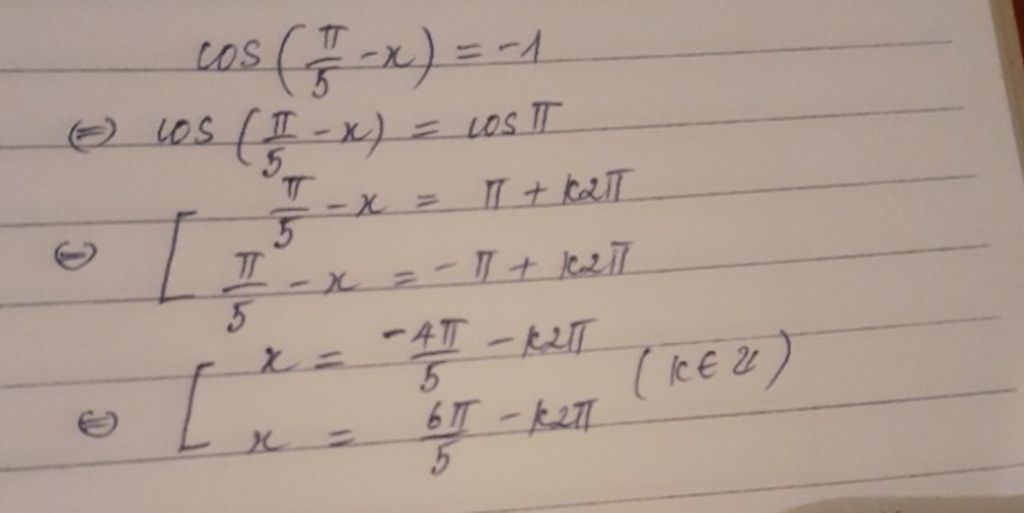 cos(π/5 - x) = -1
⇔ cos(π/5 - x) = cos π
⇔ [ π/5 - x = π + k2π
π/5 - x = -π + k2π
⇔ [ x = -4π/5 - k2π
x = 6π/5 - k2π (k ∈ Z)